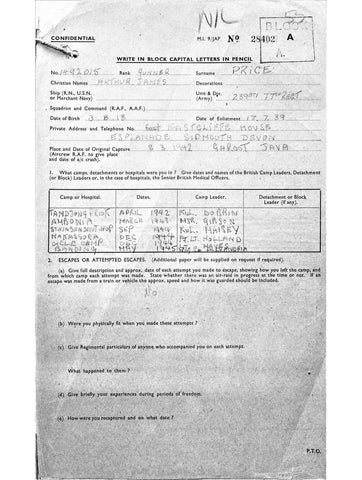 N/C
CONFIDENTIAL
M.I. 9/JAP. Nº 28402 A
WRITE IN BLOCK CAPITAL LETTERS IN PENCIL
No. 1492015 Rank GUNNER Surname PRICE
Christian Names ARTHUR JAMES Decorations
Ship (R.N., U.S.N. or Merchant Navy) Unit & Dgr. (Army) 239BTY 77TH REGT
Squadron and Command (R.A.F., A.A.F.)
Date of Birth 3.8.18 Date of Enlistment 17.7.39
Private Address and Telephone No. EASTCLIFFE HOUSE
ESPLANADE SIDMOUTH DEVON
Place and Date of Original Capture 8 3 1942 GAROET JAVA
(Aircrew R.A.F. to give place and date of a/c crash).
1. What camps, detachments or hospitals were you in? Give dates and names of the British Camp Leaders, Detachment (or Block) Leaders or, in case of hospitals, the Senior British Medical Officers.
Camp or Hospital. Dates. Camp Leader. Detachment or Block Leader (if any).
TANDJONG PRIOK APRIL 1942
MARCH 1943 GIBSON
SEP 1944 MAISEY
MAKASSURA DEC 1944 LT HOLLAND
CYCLE CAMP MAY
BANDENG 1945
2. ESCAPES OR ATTEMPTED ESCAPES. (Additional paper will be supplied on request if required).
(a) Give full description and approx. date of each attempt you made to escape, showing how you left the camp, and from which camp each attempt was made. State whether there was an air-raid in progress at the time or not. If escape was made from a train or vehicle the approx. speed and how it was guarded should be included.
(b) Were you physically fit when you made these attempts?
(c) Give Regimental particulars of anyone who accompanied you on each attempt.
What happened to them?
(d) Give briefly your experiences during periods of freedom.
(e) How were you recaptured and on what date?
P.T.O.